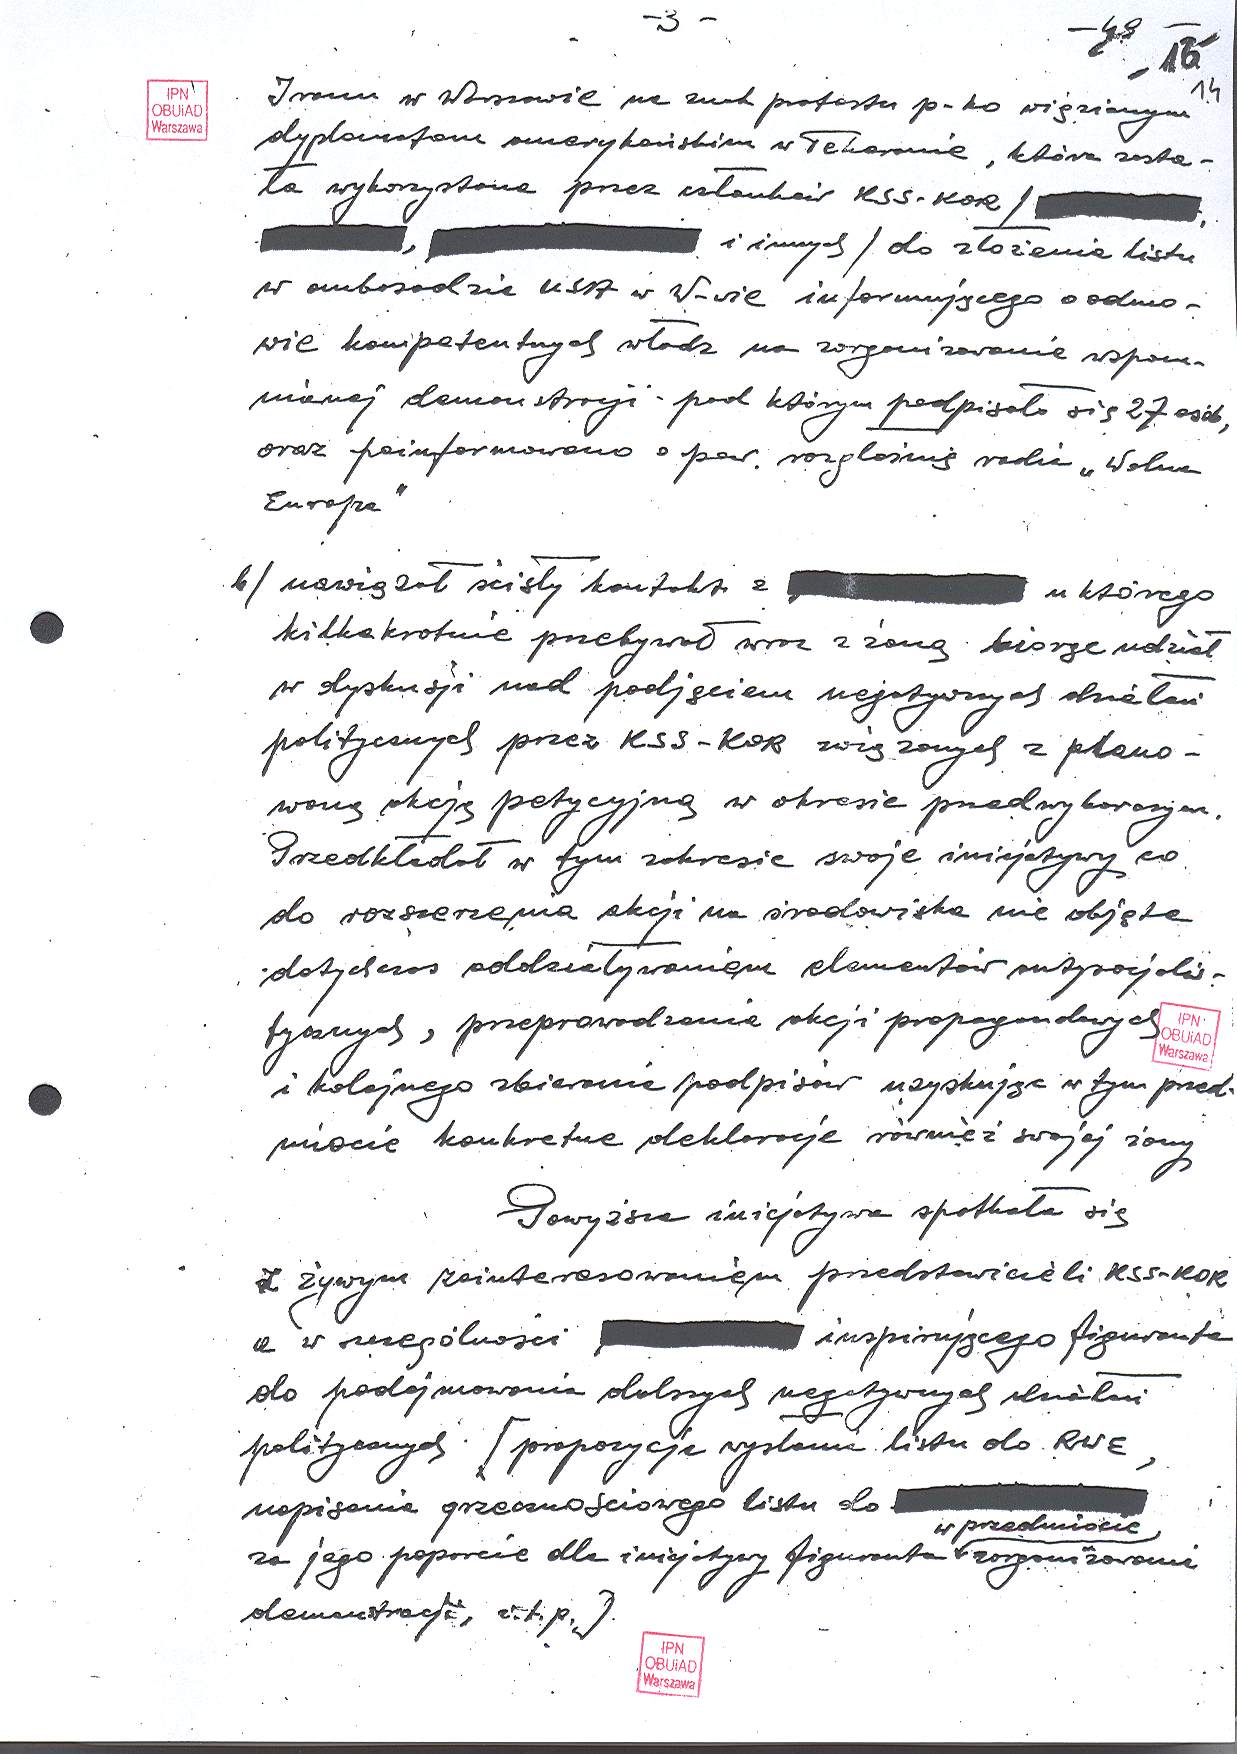 - 3 -
16
14
IPN
OBUiAD
Warszawa
Iranu w Warszawie na znak protestu p-ko więzionym
dyplomatom amerykańskim w Teheranie, która zosta-
ła wykorzystana przez członków KSS-KOR /
i innych / do złożenia listu
w ambasadzie USA w W-wie informującego o odmo-
wie kompetentnych władz na zorganizowanie wspom-
nianej demonstracji - pod którym podpisało się 27 osób,
oraz poinformowano o pow. rozgłośnię radia „Wolna
Europa"
b/ nawiązał ścisły kontakt z u którego
kilkakrotnie przebywał wraz z żoną biorąc udział
w dyskusji nad podjęciem negatywnych działań
politycznych przez KSS-KOR związanych z plano-
waną akcją petycyjną w okresie przedwyborczym.
Przedkładał w tym zakresie swoje inicjatywy co
do rozszerzenia akcji na środowiska nie objęte
dotychczas oddziaływaniem elementów antysocjalis-
tycznych, przeprowadzenia akcji propagandowych
IPN
OBUiAD
Warszawa
i kolejnego zbierania podpisów uzyskując w tym przed-
miocie konkretne deklaracje również swojej żony
Powyższa inicjatywa spotkała się
z żywym zainteresowaniem przedstawicieli KSS-KOR
a w szczególności inspirującego figuranta
do podejmowania dalszych negatywnych działań
politycznych. /propozycja wysłania listu do RWE,
napisania grzecznościowego listu do
w przedmiocie
za jego poparcie dla inicjatywy figuranta zorganizowania
demonstracji, i.t.p./
IPN
OBUiAD
Warszawa